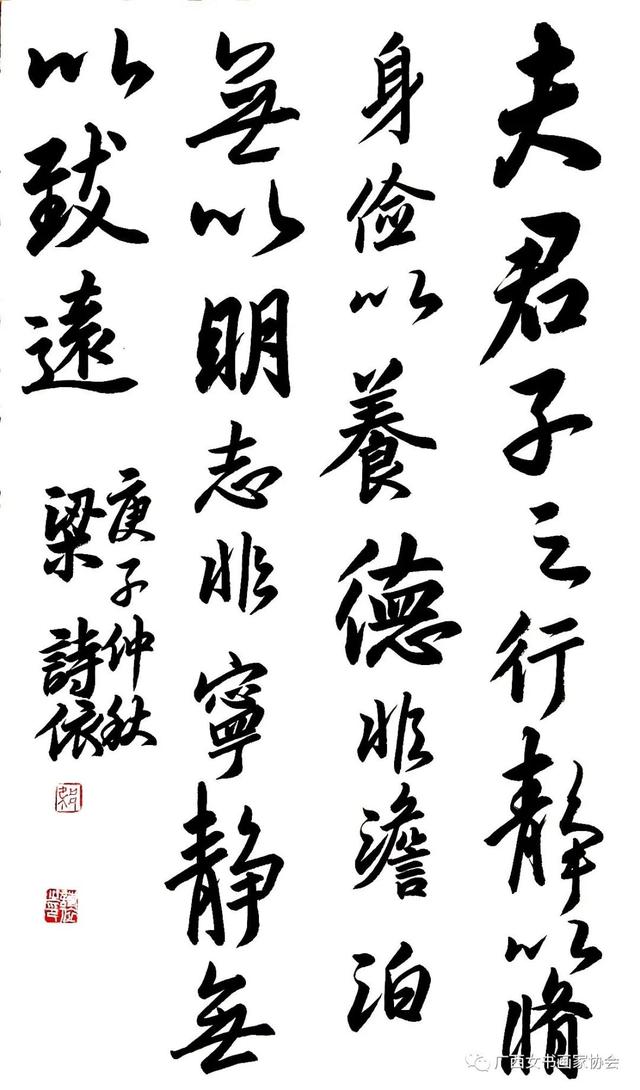 夫君子之行静以脩
身俭以養德非澹泊
無以明志非寧静無
以致遠
庚子仲秋
梁詩依
广西女书画家协会